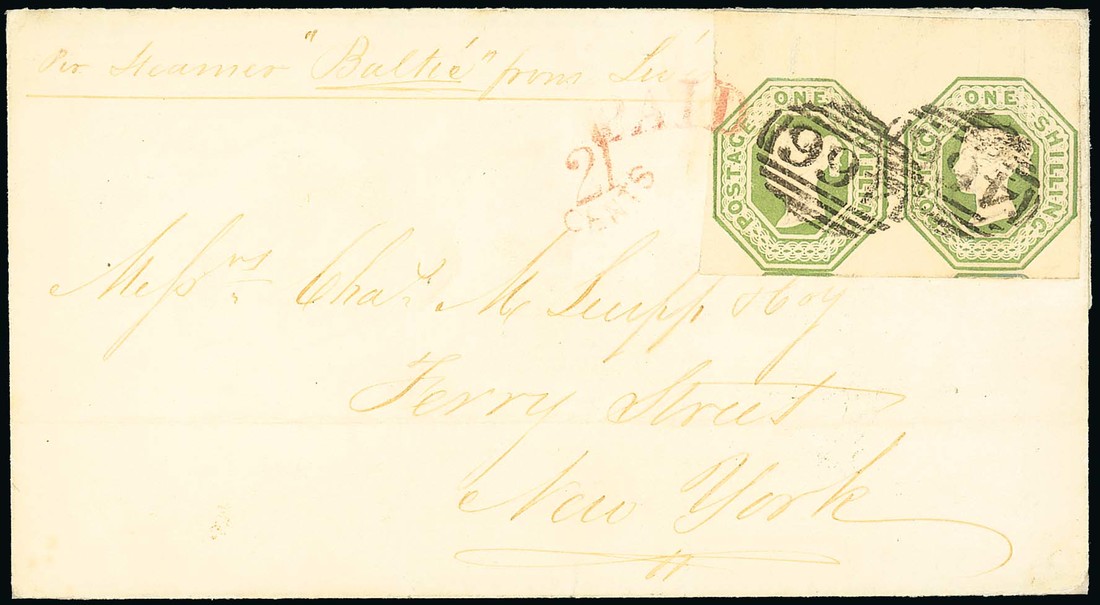 Per Steamer "Baltic" from
PAID
21
CENTS
ONE SHILLING
POSTAGE
ONE SHILLING
POSTAGE
Messrs Chas M Leupp & Coy
Ferry Street
New York